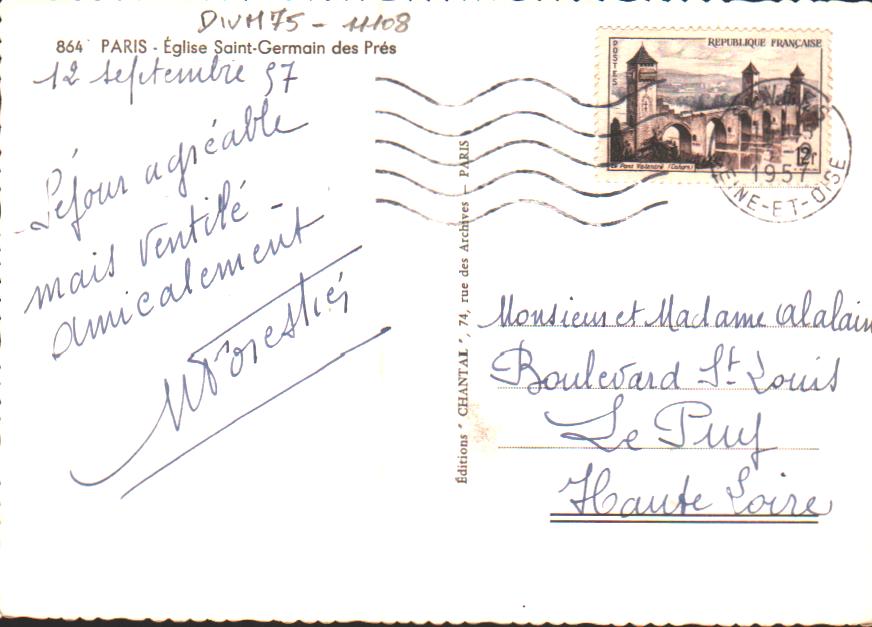 DIVM75 - 11108
864 PARIS - Église Saint-Germain des Prés
12 septembre 57
Séjour agréable
mais ventilé -
amicalement
MForestier
Éditions " CHANTAL ", 74, rue des Archives - PARIS
REPUBLIQUE FRANÇAISE
POSTES
Le Pont Valentré (Cahors)
12F
1957
SEINE-ET-OISE
Monsieur et Madame Alalain
Boulevard St Louis
Le Puy
Haute Loire